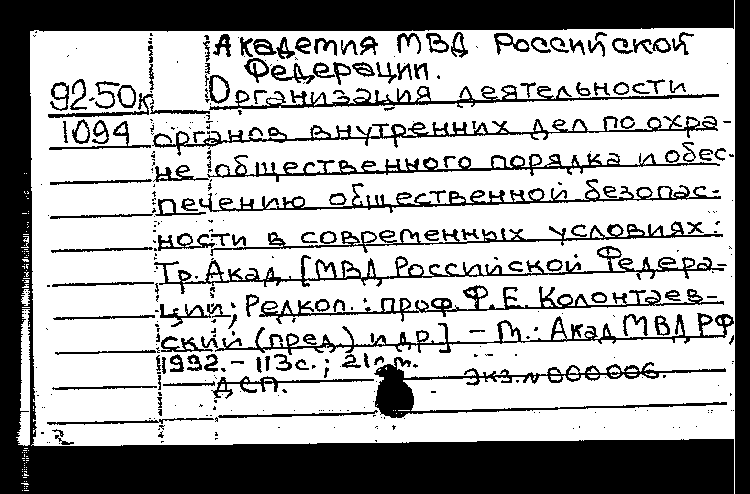 Академия МВД Российской
Федерации.
92-50к Организация деятельности
1094 органов внутренних дел по охра-
не общественного порядка и обес-
печению общественной безопас-
ности в современных условиях:
Тр. Акад. [МВД Российской Федера-
ции; Редкол.: проф. Ф.Е. Колонтаев-
ский (пред.) и др.] - М.: Акад МВД РФ,
1992. - 113с.; 21
ДСП. - Экз. № 000006.